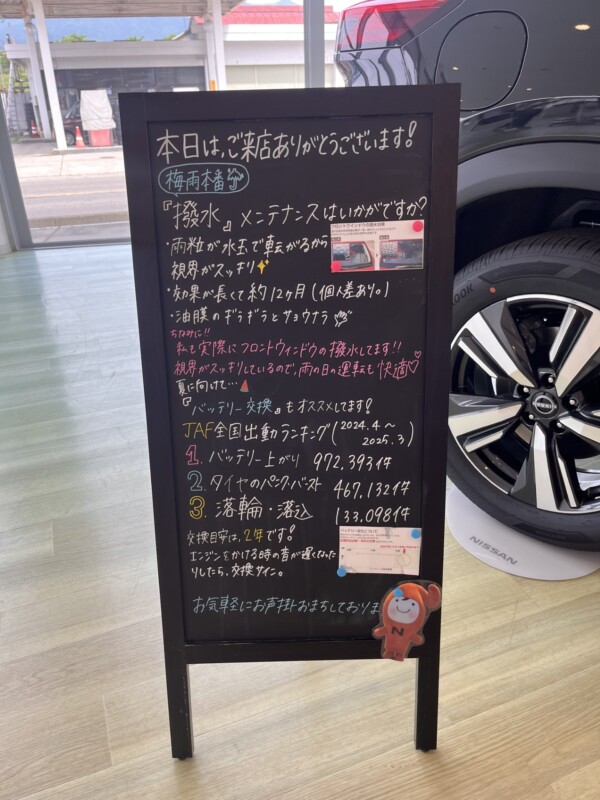 本日は、ご来店ありがとうございます!
梅雨本番
『撥水』メンテナンスはいかがですか?
・雨粒が水玉で転がるから
視界がスッキリ
・効果が長くて約12ヶ月(個人差あり。)
・油膜のギラギラとサヨウナラ
ちなみに!!
私も実際にフロントウィンドウの撥水してます!!
視界がスッキリしているので、雨の日の運転も快適♡
夏に向けて…
『バッテリー交換』もオススメしてます!
JAF全国出動ランキング(2024.4~
2025.3)
1. バッテリー上がり 972.393件
2. タイヤのパンク バースト 467.132件
3. 落輪・落込 133.098件
交換目安は、2年です!
エンジンをかける時の音が遅くなった
りしたら、交換サイン。
お気軽にお声掛おまちしておりま
N
NISSAN
NISSAN